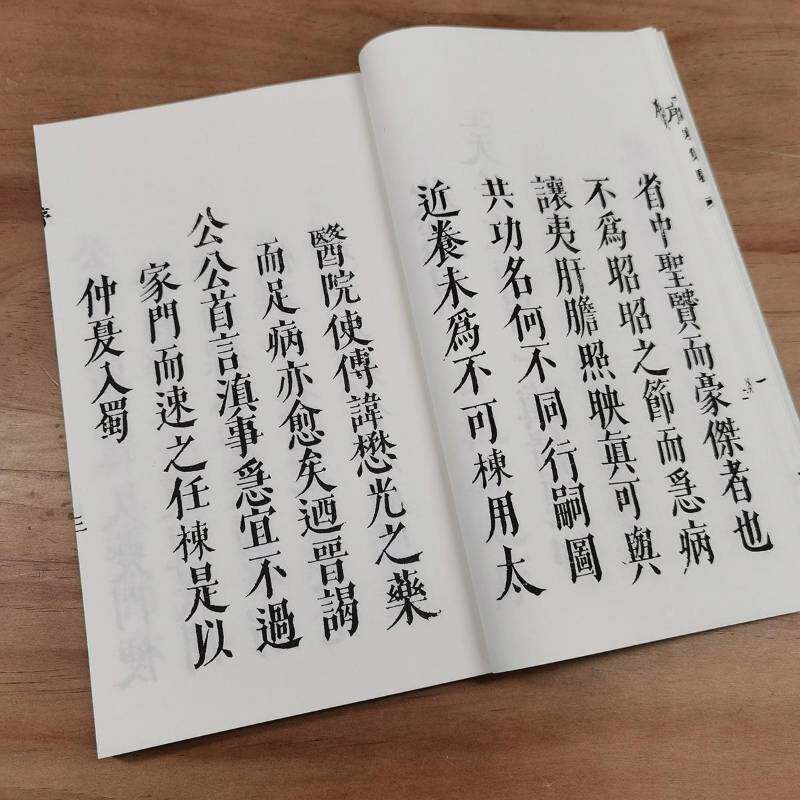 省中聖賢而豪傑者也
不爲昭昭之節而急病
讓夷肝膽照映真可與
共功名何不同行嗣圖
近養未爲不可棟用太
醫院使傅諱懋光之藥
而足病亦愈矣迺晉謁
公公首言滇事急宜不過
家門而速之任棟是以
仲夏入蜀
三